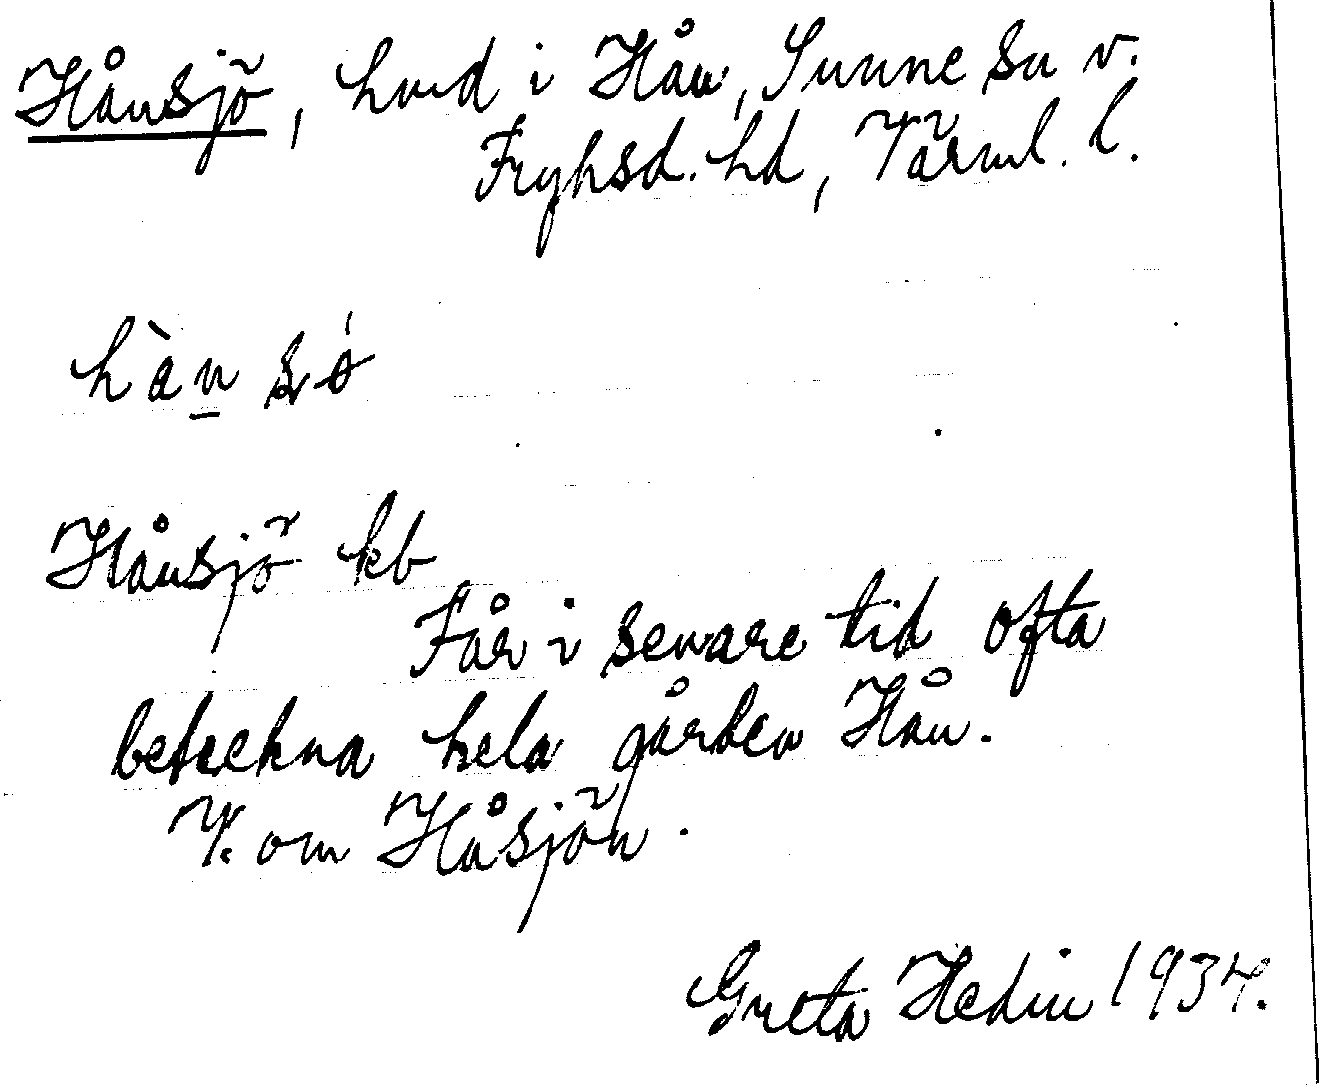 Hånsjö, hmd i Hån, Sunne sn v.
Fryksd. hd, Värml. l.
hàn
Hånsjö kb
Får i senare tid ofta
beteckna hela gården Hån.
V. om Håsjön.
Greta Hedin 1934.